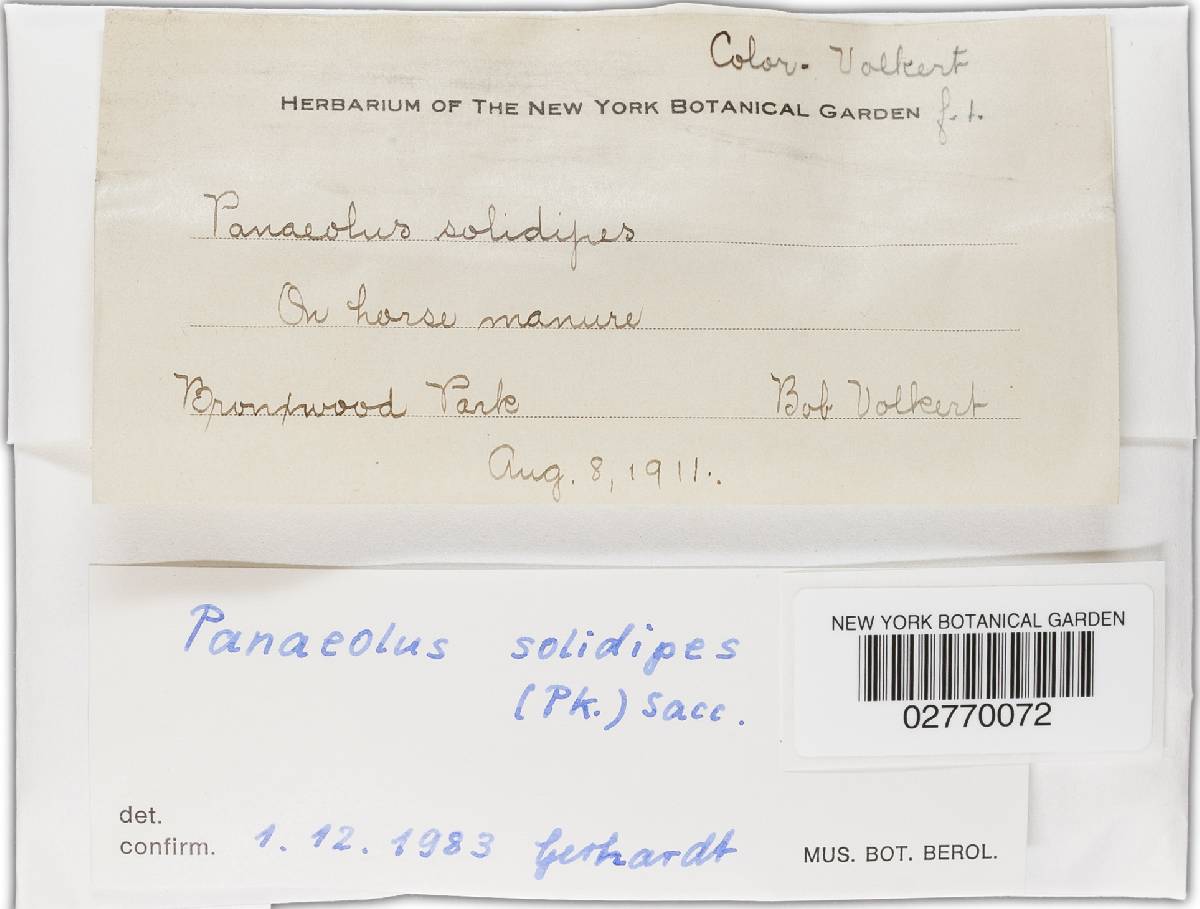 Color. Volkert
HERBARIUM OF THE NEW YORK BOTANICAL GARDEN f. 1.
Panaeolus solidipes
On horse manure
Bronxwood Park Bob Volkert
Aug. 8, 1911.
Panaeolus solidipes
(Pk.) Sacc.
NEW YORK BOTANICAL GARDEN
02770072
det.
confirm. 1. 12. 1983 Gerhardt
MUS. BOT. BEROL.